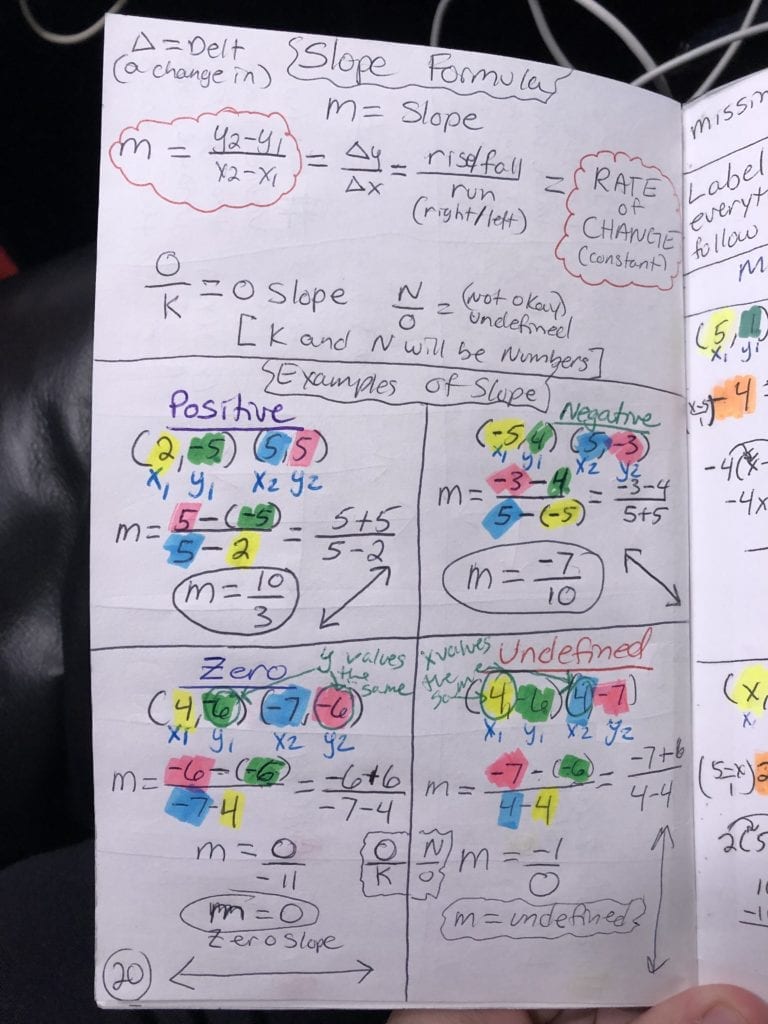 Δ = Delt
(a change in)
Slope Formula
m = Slope
m = y2-y1 / x2-x1 = Δy / Δx = rise/fall / run (right/left) = RATE of CHANGE (constant)
O/K = 0 Slope N/O = (Not Okay) undefined
[K and N will be Numbers]
Examples of Slope
Positive
(2, -5) (5, 5)
x1 y1 x2 y2
m = 5-(-5) / 5-2 = 5+5 / 5-2
m = 10/3
Negative
(-5, 4) (5, -3)
x1 y1 x2 y2
m = -3-4 / 5-(-5) = -3-4 / 5+5
m = -7/10
Zero
y values
the
same
(4, -6) (-7, -6)
x1 y1 x2 y2
m = -6-(-6) / -7-4 = -6+6 / -7-4
m = 0/-11
O/K
m = 0
Zero Slope
20
Undefined
x values
the
same
(4, -6) (4, -7)
x1 y1 x2 y2
m = -7-(-6) / 4-4 = -7+6 / 4-4
N/O
m = -1/0
m = undefined
missin
Label
everyt
follow
M
(5, 1
x1 y1
-4
-4(x-
-4x
(x,
x1
(5-x) 2
1
2(5
10
-1